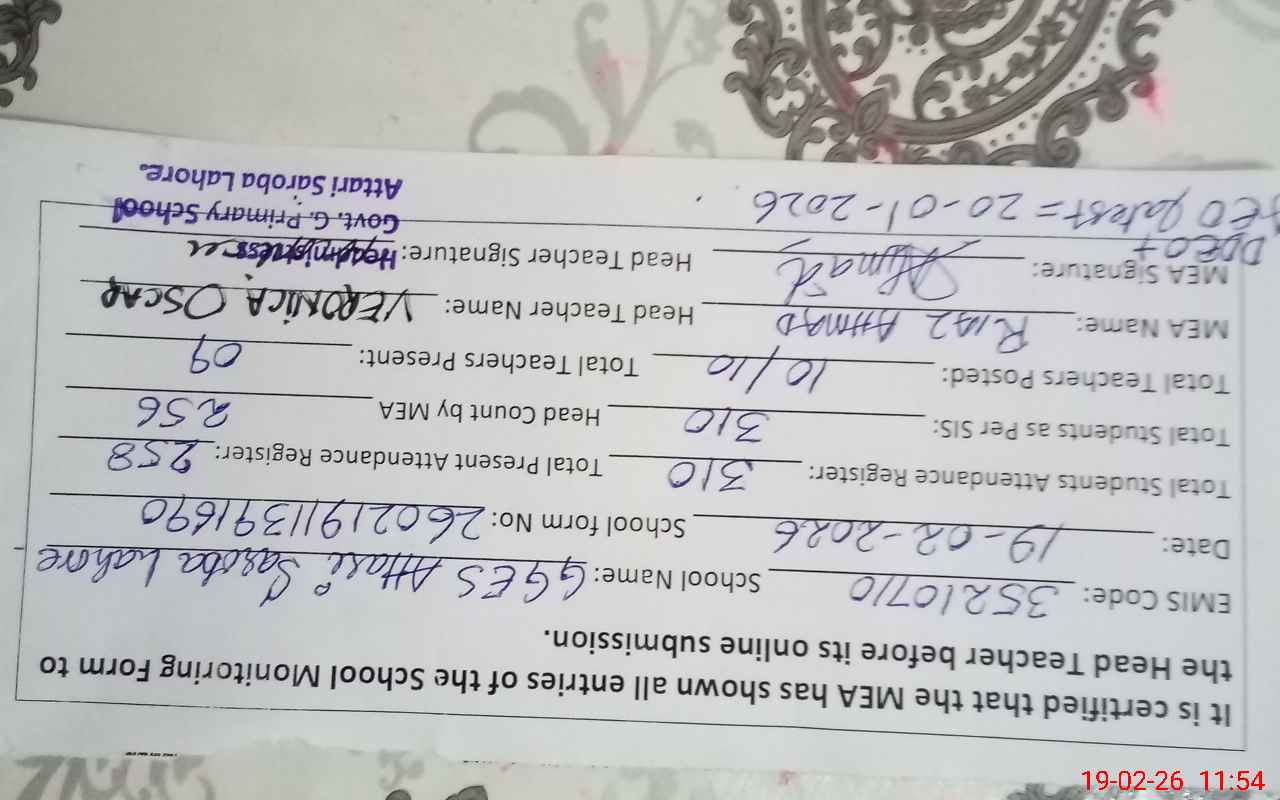 It is certified that the MEA has shown all entries of the School Monitoring Form to
the Head Teacher before its online submission.
EMIS Code: 35210710 School Name: GGES Attari Saroba Lahore
Date: 19-02-2026 School form No: 26021911391690
Total Students Attendance Register: 310 Total Present Attendance Register: 258
Total Students as Per SIS: 310 Head Count by MEA 256
Total Teachers Posted: 10/10 Total Teachers Present: 09
MEA Name: RIAZ AHMAD Head Teacher Name: VERONICA OSCAR
MEA Signature: Ahmad Head Teacher Signature:
Headmistress
Govt. G. Primary School
Attari Saroba Lahore.
DDEO +
AEO latest = 20-01-2026
19-02-26 11:54